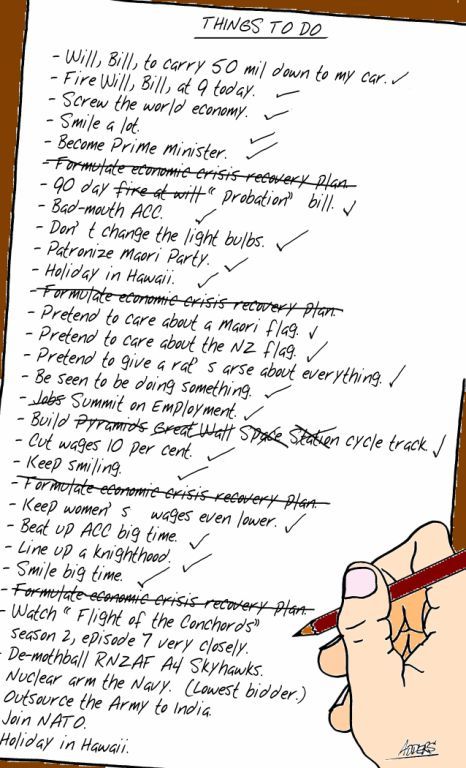 THINGS TO DO
- Will, Bill, to carry 50 mil down to my car.
- Fire Will, Bill, at 9 today.
- Screw the world economy.
- Smile a lot.
- Become Prime minister.
- Formulate economic crisis recovery plan.
- 90 day fire at will "Probation" bill.
- Bad-mouth ACC.
- Don't change the light bulbs.
- Patronize Maori Party.
- Holiday in Hawaii.
- Formulate economic crisis recovery plan.
- Pretend to care about a Maori flag.
- Pretend to care about the NZ flag.
- Pretend to give a rat's arse about everything.
- Be seen to be doing something.
- Jobs Summit on Employment.
- Build Pyramids Great Wall Space Station cycle track.
- Cut wages 10 per cent.
- Keep smiling.
- Formulate economic crisis recovery plan.
- Keep women's wages even lower.
- Beat up ACC big time.
- Line up a knighthood.
- Smile big time.
- Formulate economic crisis recovery plan.
- Watch "Flight of the Conchords"
season 2, episode 7 very closely.
- De-mothball RNZAF A4 Skyhawks.
Nuclear arm the Navy. (Lowest bidder.)
Outsource the Army to India.
Join NATO.
Holiday in Hawaii.
ADDERS